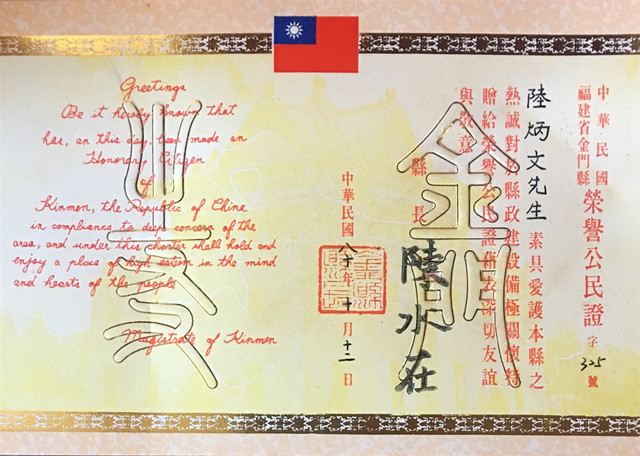 中華民國
福建省金門縣
榮譽公民證 字325號
陸炳文先生 素具愛護本縣之
熱誠對於縣政建設備極關懷特
贈給榮譽公民證代表深切友誼
與敬意
縣長 陸水在
中華民國八十年十月十二日
Greetings
Be it hereby known that
has, on this day, been made an
Honorary Citizen
of
Kinmen, the Republic of China
in compliance to deep concern of the
area, and under this charter shall hold and
enjoy a place of high esteem in the mind
and hearts of the people
Magistrate of Kinmen